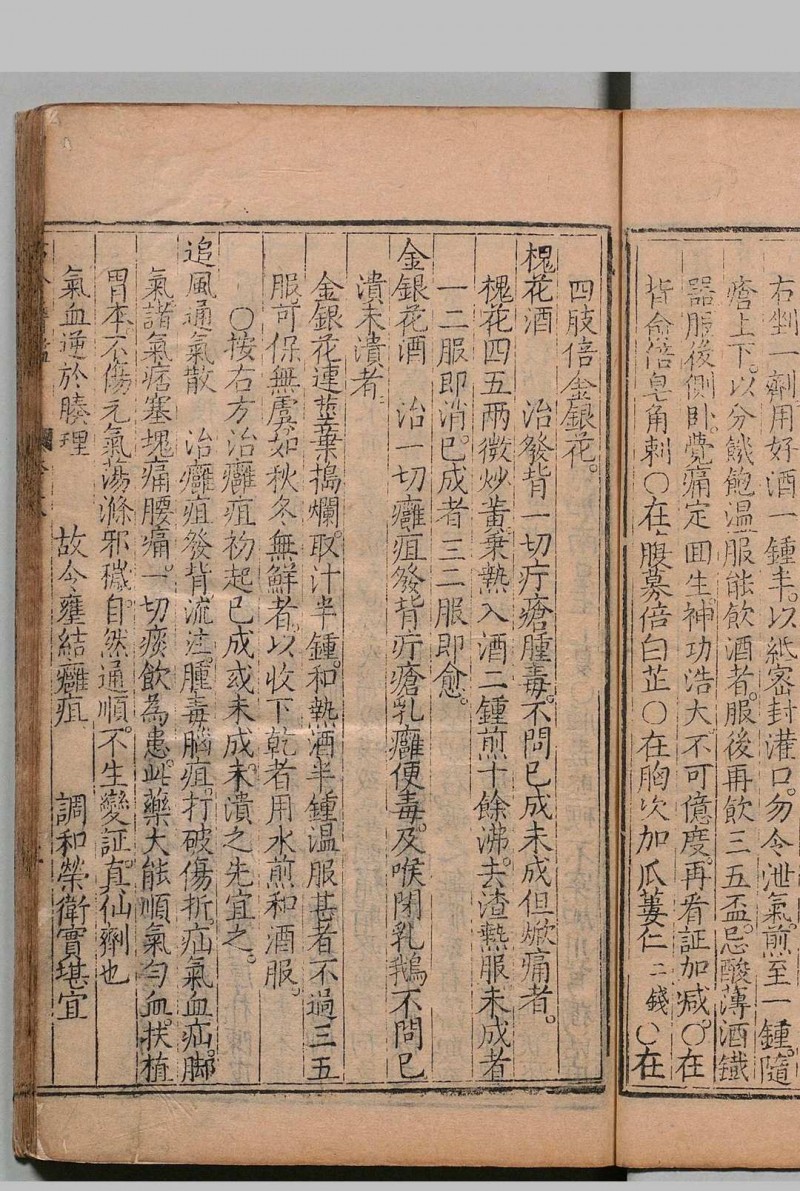 右剉一劑用好酒一鍾半。以紙密封灌口。勿令泄氣。煎至一鍾。隨
瘡上下。以分饑飽溫服能飲酒者。服後再飲三五盃。忌酸薄酒鐵
器服後側卧。覺痛定囬生。神功浩大。不可億度。再看証加減。○在
背俞倍皂角刺○在腹募倍白芷○在胸次加瓜蔞仁二錢○在
四肢倍金銀花。
槐花酒　治發背一切疔瘡腫毒。不問已成未成但焮痛者。
槐花四五兩微炒黃乗熱入酒二鍾煎十餘沸。去渣熱服未成者
一二服即消。已成者三二服即愈。
金銀花酒　治一切癰疽發背疔瘡乳癰便毒。及喉閉乳鵝不問已
潰未潰者
金銀花連莖葉搗爛。取汁半鍾。和熱酒半鍾溫服甚者不過三五
服可保無虞如秋冬無鮮者。以收下乾者用水煎和酒服。
○按右方治癰疽初起已成或未成未潰之先宜之。
追風通氣散　治癰疽發背流注。腫毒腦疽。打破傷折。疝氣血疝。脚
氣。諸氣痞塞塊痛腰痛。一切痰飲為患。此藥大能順氣勻血。扶植
胃本不傷元氣蕩滌邪穢。自然通順。不生變証。真仙劑也
氣血逆於腠理　故令壅結癰疽　調和榮衛實堪宜